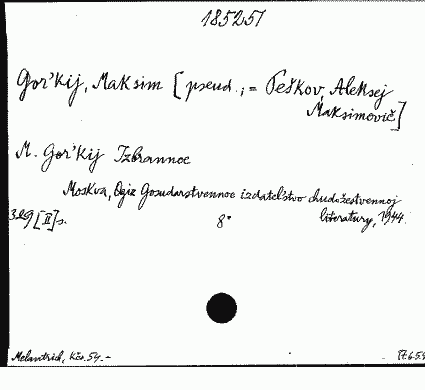 185251
Gor'kij, Maksim [pseud.; = Peškov, Aleksej
Maksimovič]
M. Gor'kij Izbrannoe
Moskva, Ogiz Gosudarstvennoe izdatel'stvo chudožestvennoj
literatury, 1944.
329 [II] s.
8°
Melantrich, Kčs. 54.-